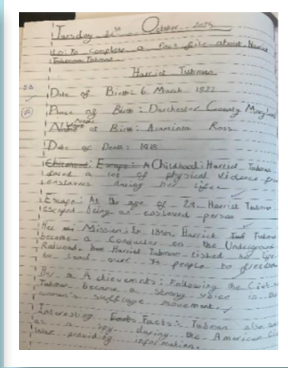 Tuesday 21st October 2025
L.O: to complete a fact file about Harriet
Tubman
Harriet Tubman
Date of Birth: 6 March 1822
Place of Birth: Dorchester County Maryland
Name at Birth: Araminta Ross
Date of Death: 1913
Childhood: Harriet Tubman
faced a lot of physical violence
during her life
Escape: At the age of 27, Harriet Tubman
escaped being an enslaved person
Her Missions: Harriet Tubman
became a conductor on the Underground
Railroad. Harriet Tubman risked her life
to lead over 70 people to freedom
Achievements: Following the Civil
Tubman became a strong voice in the
women's suffrage movement.
Interesting Facts: Tubman also
as a spy during the American Civil
War providing information